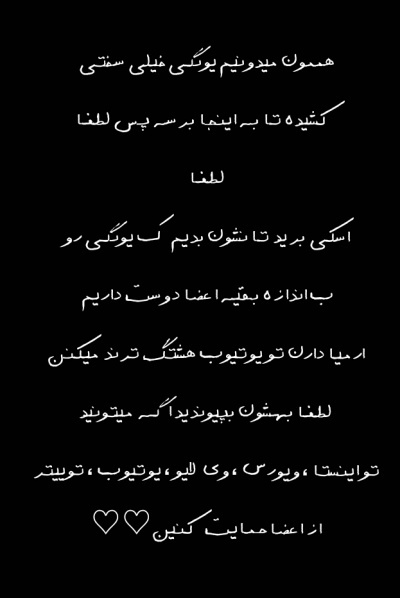 هممون میدونیم یونگی خیلی سختی
کشیده تا به اینجا برسه پس لطفا
لطفا
اسکی برید تا نشون بدیم ک یونگی رو
ب اندازه بقیه اعضا دوست داریم
ارمیا دارن تو یوتیوب هشتگ ترند میکنن
لطفا بهشون بپیوندید اگه میتونید
تو اینستا ،ویورس ،وی لایو،یوتیوب،توییتر
از اعضا حمایت کنین ♡♡